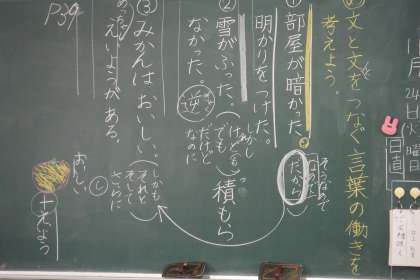 め 文と文をつなぐ言葉の働きを
考えよう。
①部屋が暗かった。
だから
そうなので
なので
明かりをつけた。
②雪がふった。
しかし
けれども
でも
だけど
なのに
積もら
なかった。
逆
③みかんはおいしい。
しかも
それと
そして
さらに
えいようがある。
おいしい
＋えいよう
P39
月
24
日
曜
日直